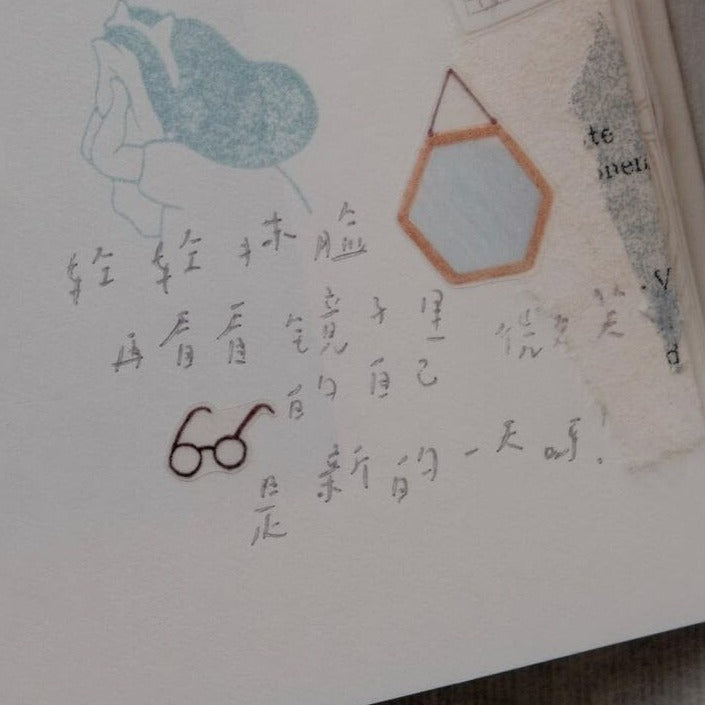 轻轻抹脸
再看看镜子里 微笑
的自己
是新的一天呀!
te
onen
V
d